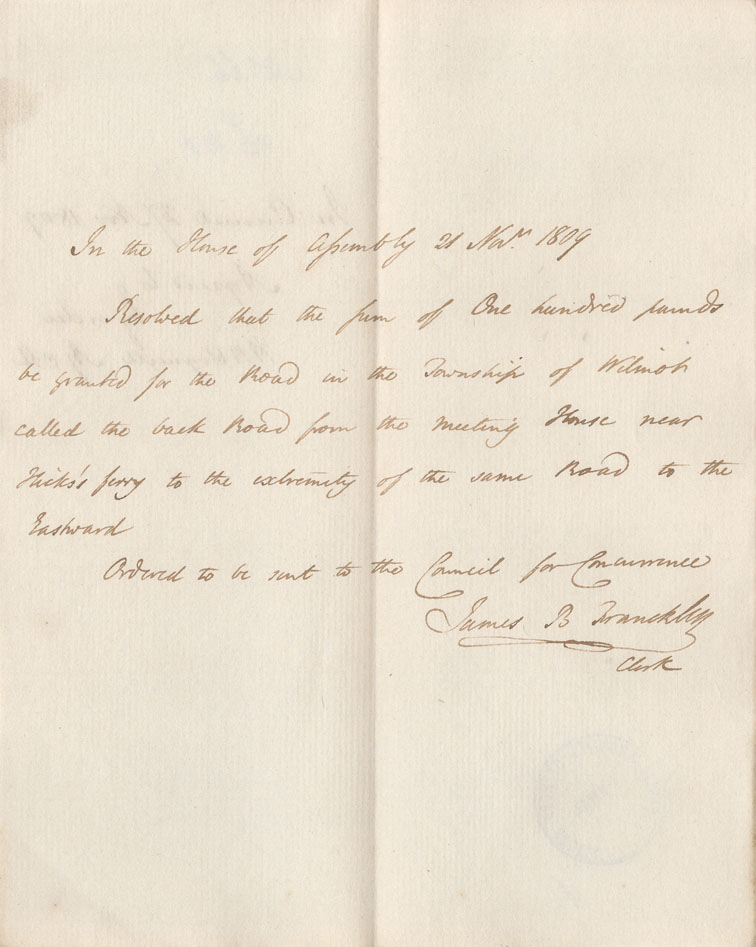 In the House of Assembly 21 Novr. 1809
Resolved that the sum of One hundred pounds
be granted for the Road in the Township of Wilmot
called the back Road from the meeting House near
Hicks's ferry to the extremity of the same Road to the
Eastward
Ordered to be sent to the Council for Concurrence
James B Francklin
Clerk